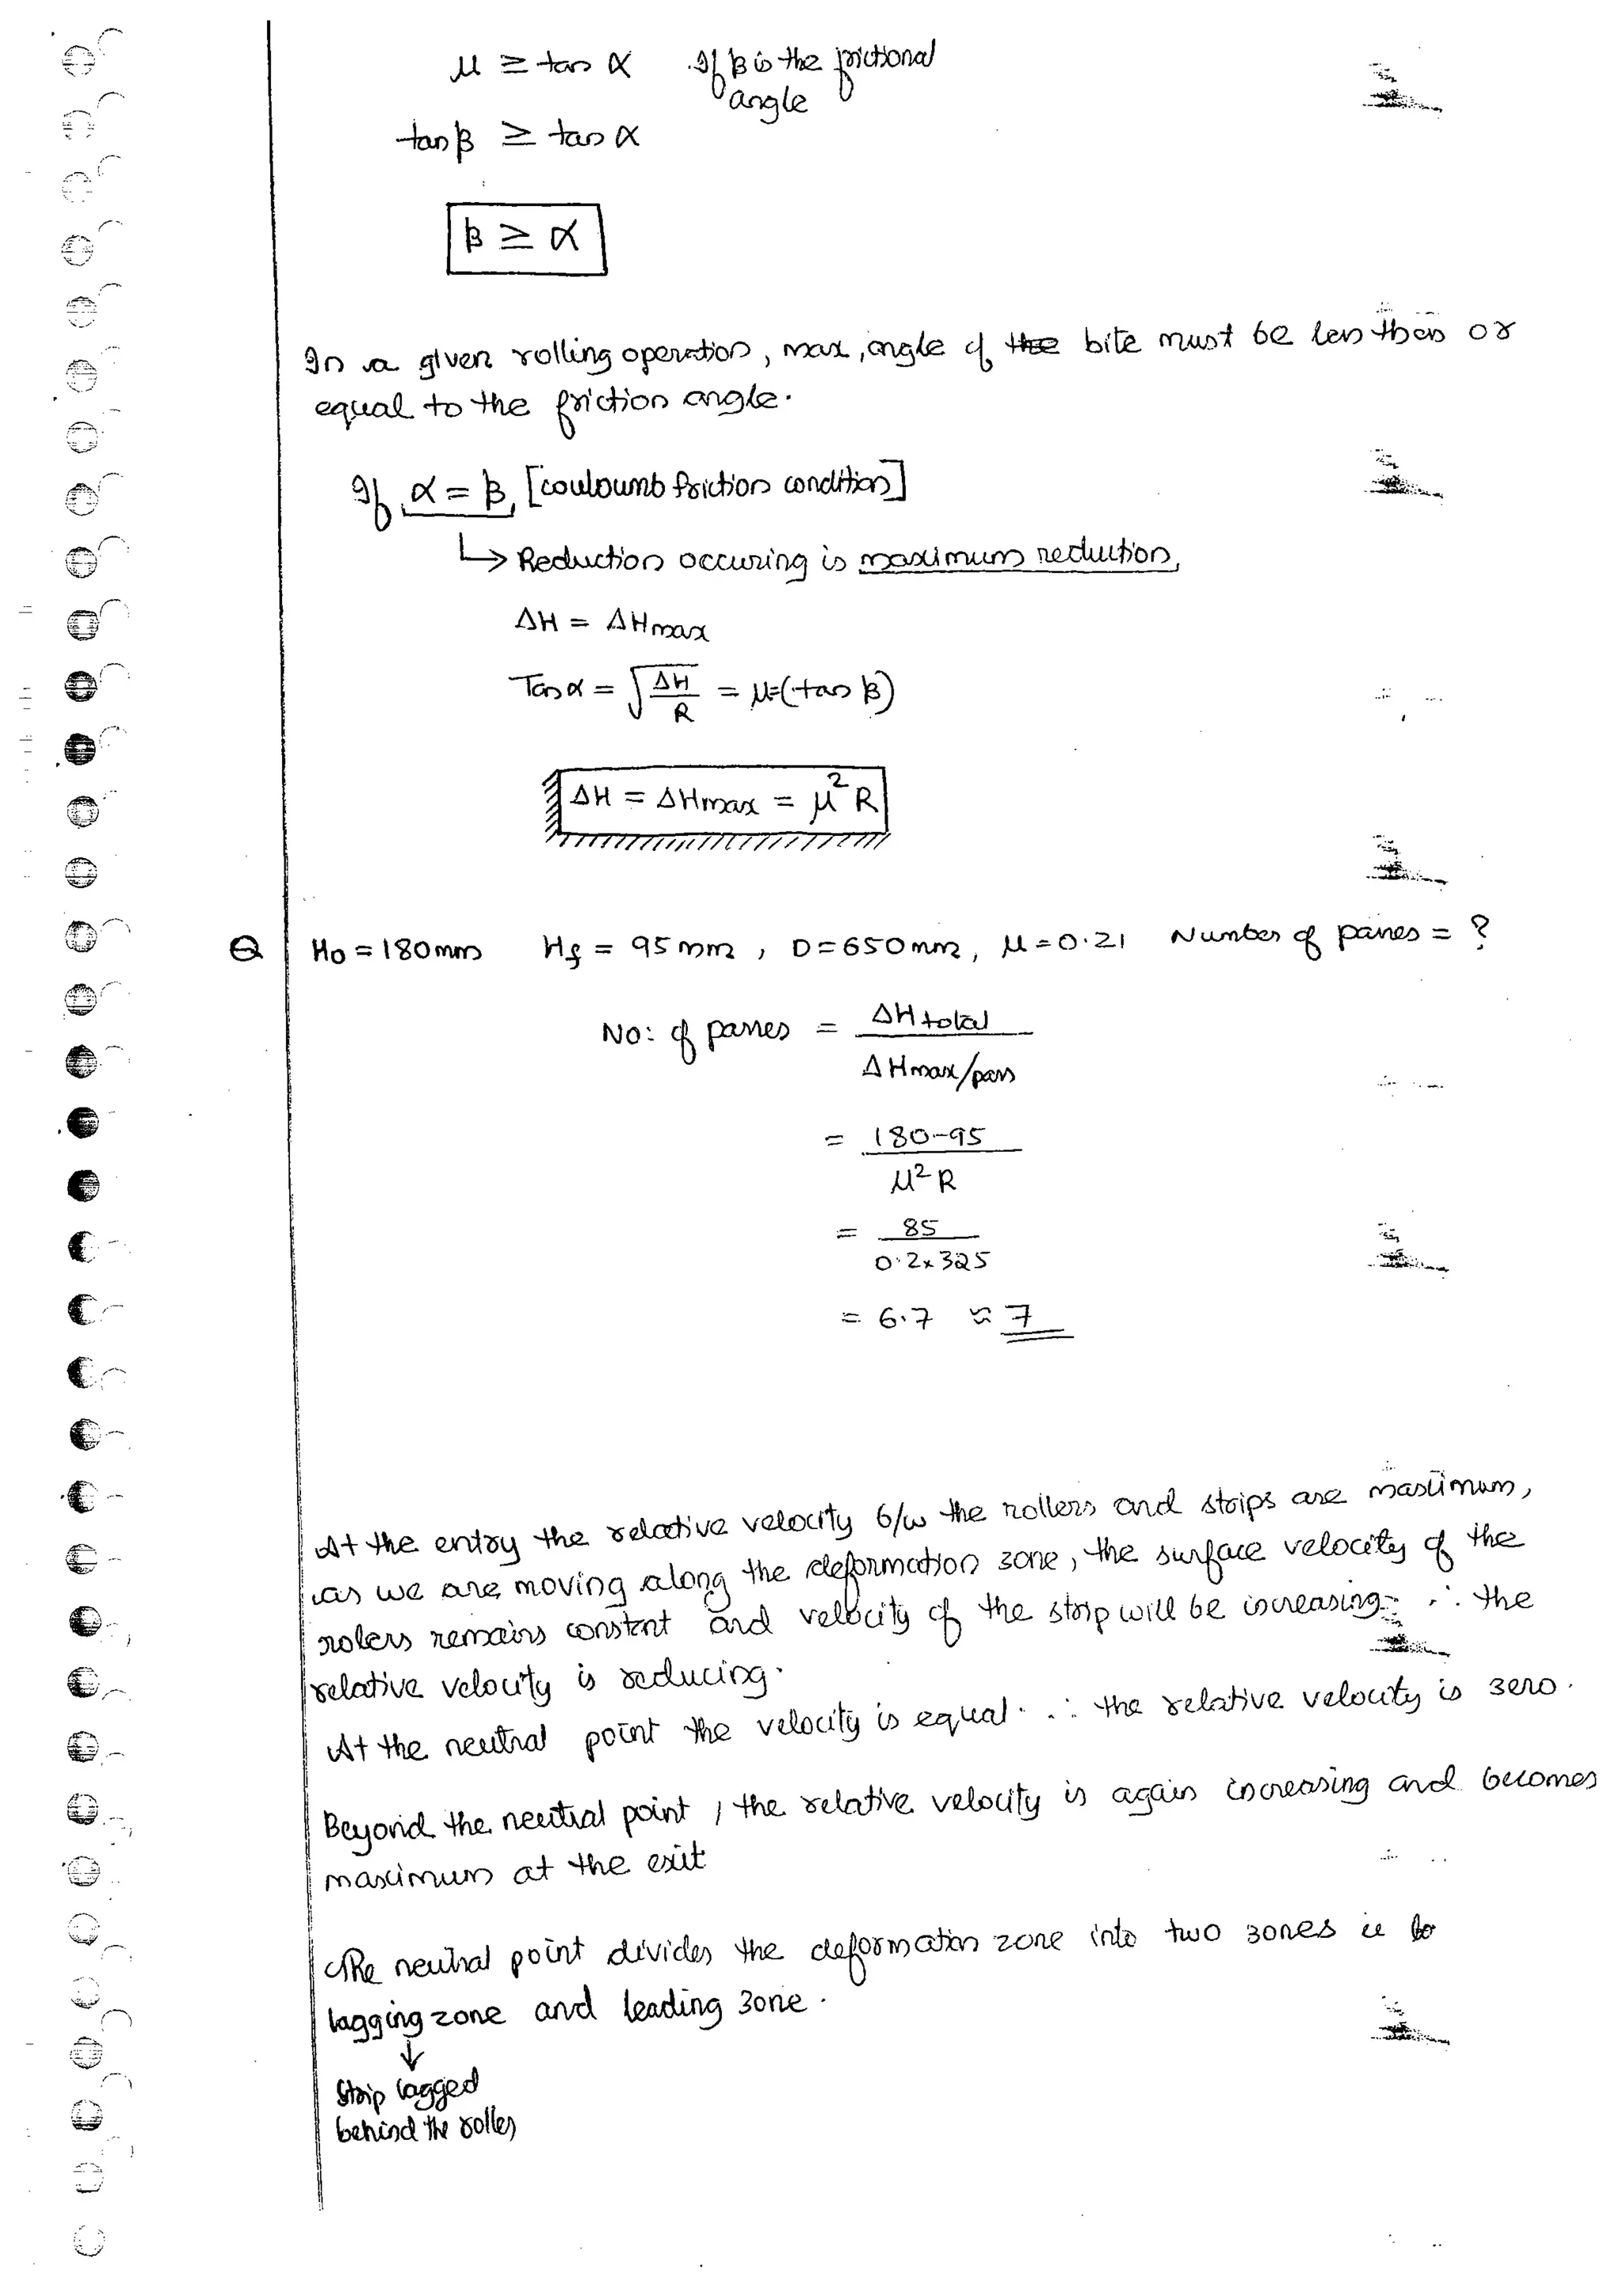 μ ≥ tan α If β is the frictional
angle
tan β ≥ tan α
β ≥ α
In a given rolling operation, max, angle of the bite must be less than or
equal to the friction angle.
If α = β, [couloumb friction condition]
↳ Reduction occuring is maximum reduction,
ΔH = ΔHmax
Tan α = √(ΔH/R) = μ=(tan β)
ΔH = ΔHmax = μ²R
Q H₀ = 180mm Hf = 95mm, D=650mm, μ=0.21 Number of passes = ?
No: of passes = ΔHtotal
ΔHmax/pass
= 180-95
μ²R
= 85
0.2x325
= 6.7 ≈ 7
At the entry the relative velocity b/w the rollers and strips are maximum,
as we are moving along the deformation zone, the surface velocity of the
rolers remains constant and velocity of the strip will be increasing. ∴ the
relative velocity is reducing.
At the neutral point the velocity is equal. ∴ the relative velocity is zero.
Beyond the neutral point, the relative velocity is again increasing and becomes
maximum at the exit
The neutral point divides the deformation zone into two zones ie
lagging zone and leading zone.
↓
Strip lagged
behind the roller